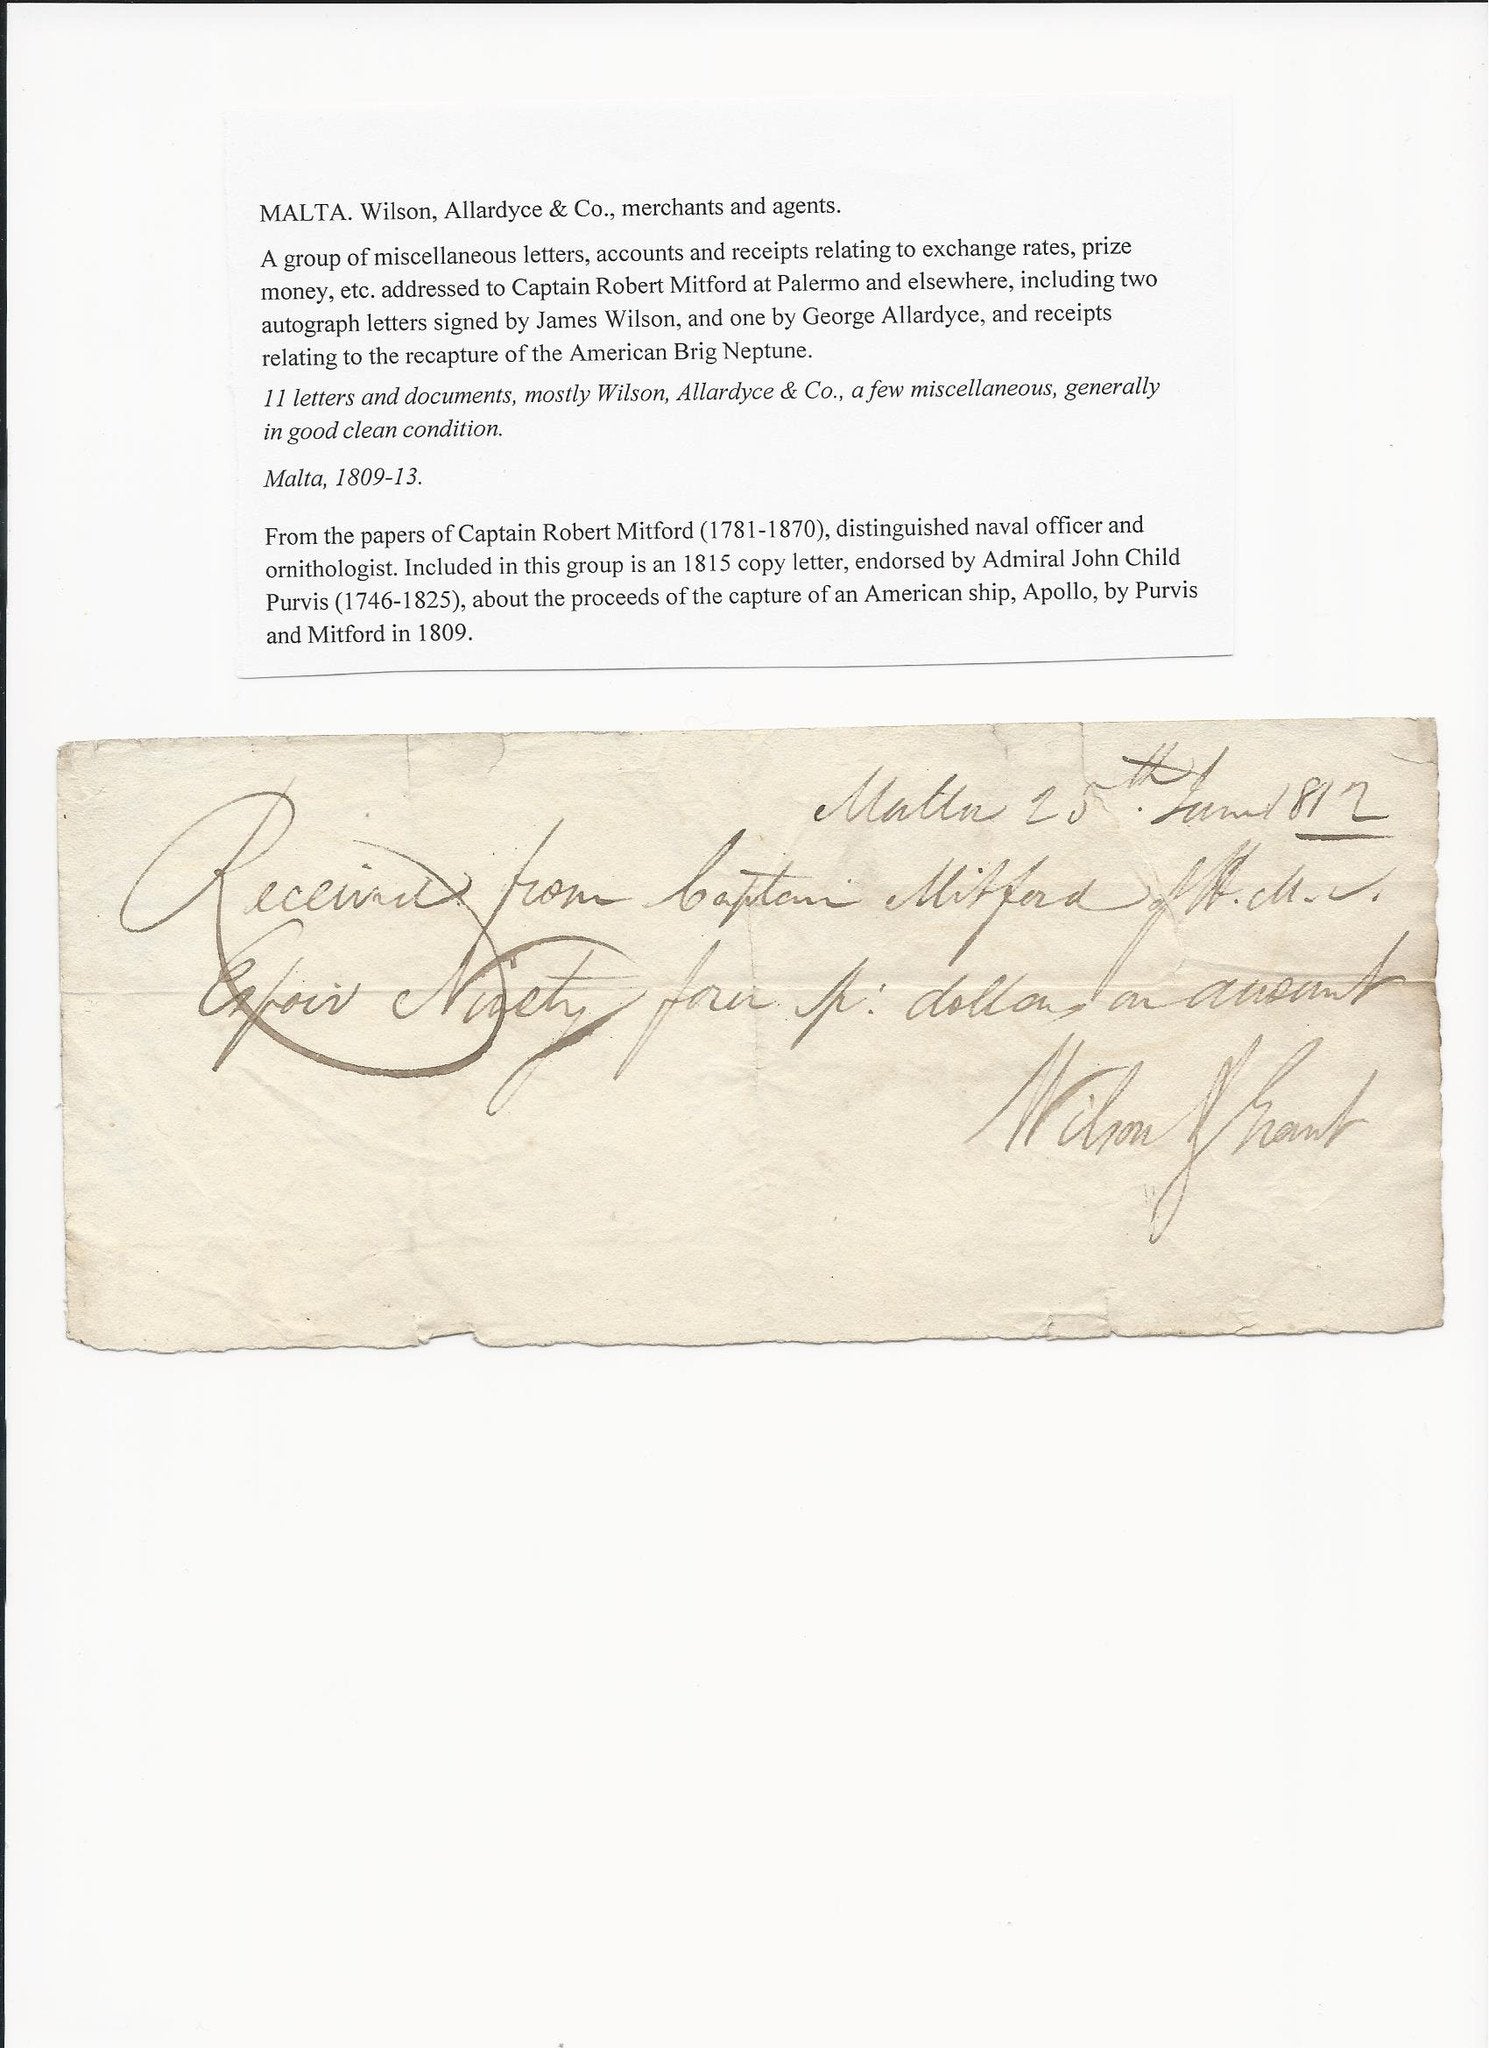 MALTA. Wilson, Allardyce & Co., merchants and agents.
A group of miscellaneous letters, accounts and receipts relating to exchange rates, prize
money, etc. addressed to Captain Robert Mitford at Palermo and elsewhere, including two
autograph letters signed by James Wilson, and one by George Allardyce, and receipts
relating to the recapture of the American Brig Neptune.
11 letters and documents, mostly Wilson, Allardyce & Co., a few miscellaneous, generally
in good clean condition.
Malta, 1809-13.
From the papers of Captain Robert Mitford (1781-1870), distinguished naval officer and
ornithologist. Included in this group is an 1815 copy letter, endorsed by Admiral John Child
Purvis (1746-1825), about the proceeds of the capture of an American ship, Apollo, by Purvis
and Mitford in 1809.
Malta 25th June 1812
Received from Captain Mitford of H.M.S.
Espoir Ninety four Sp: dollars on account
Wilson Grant